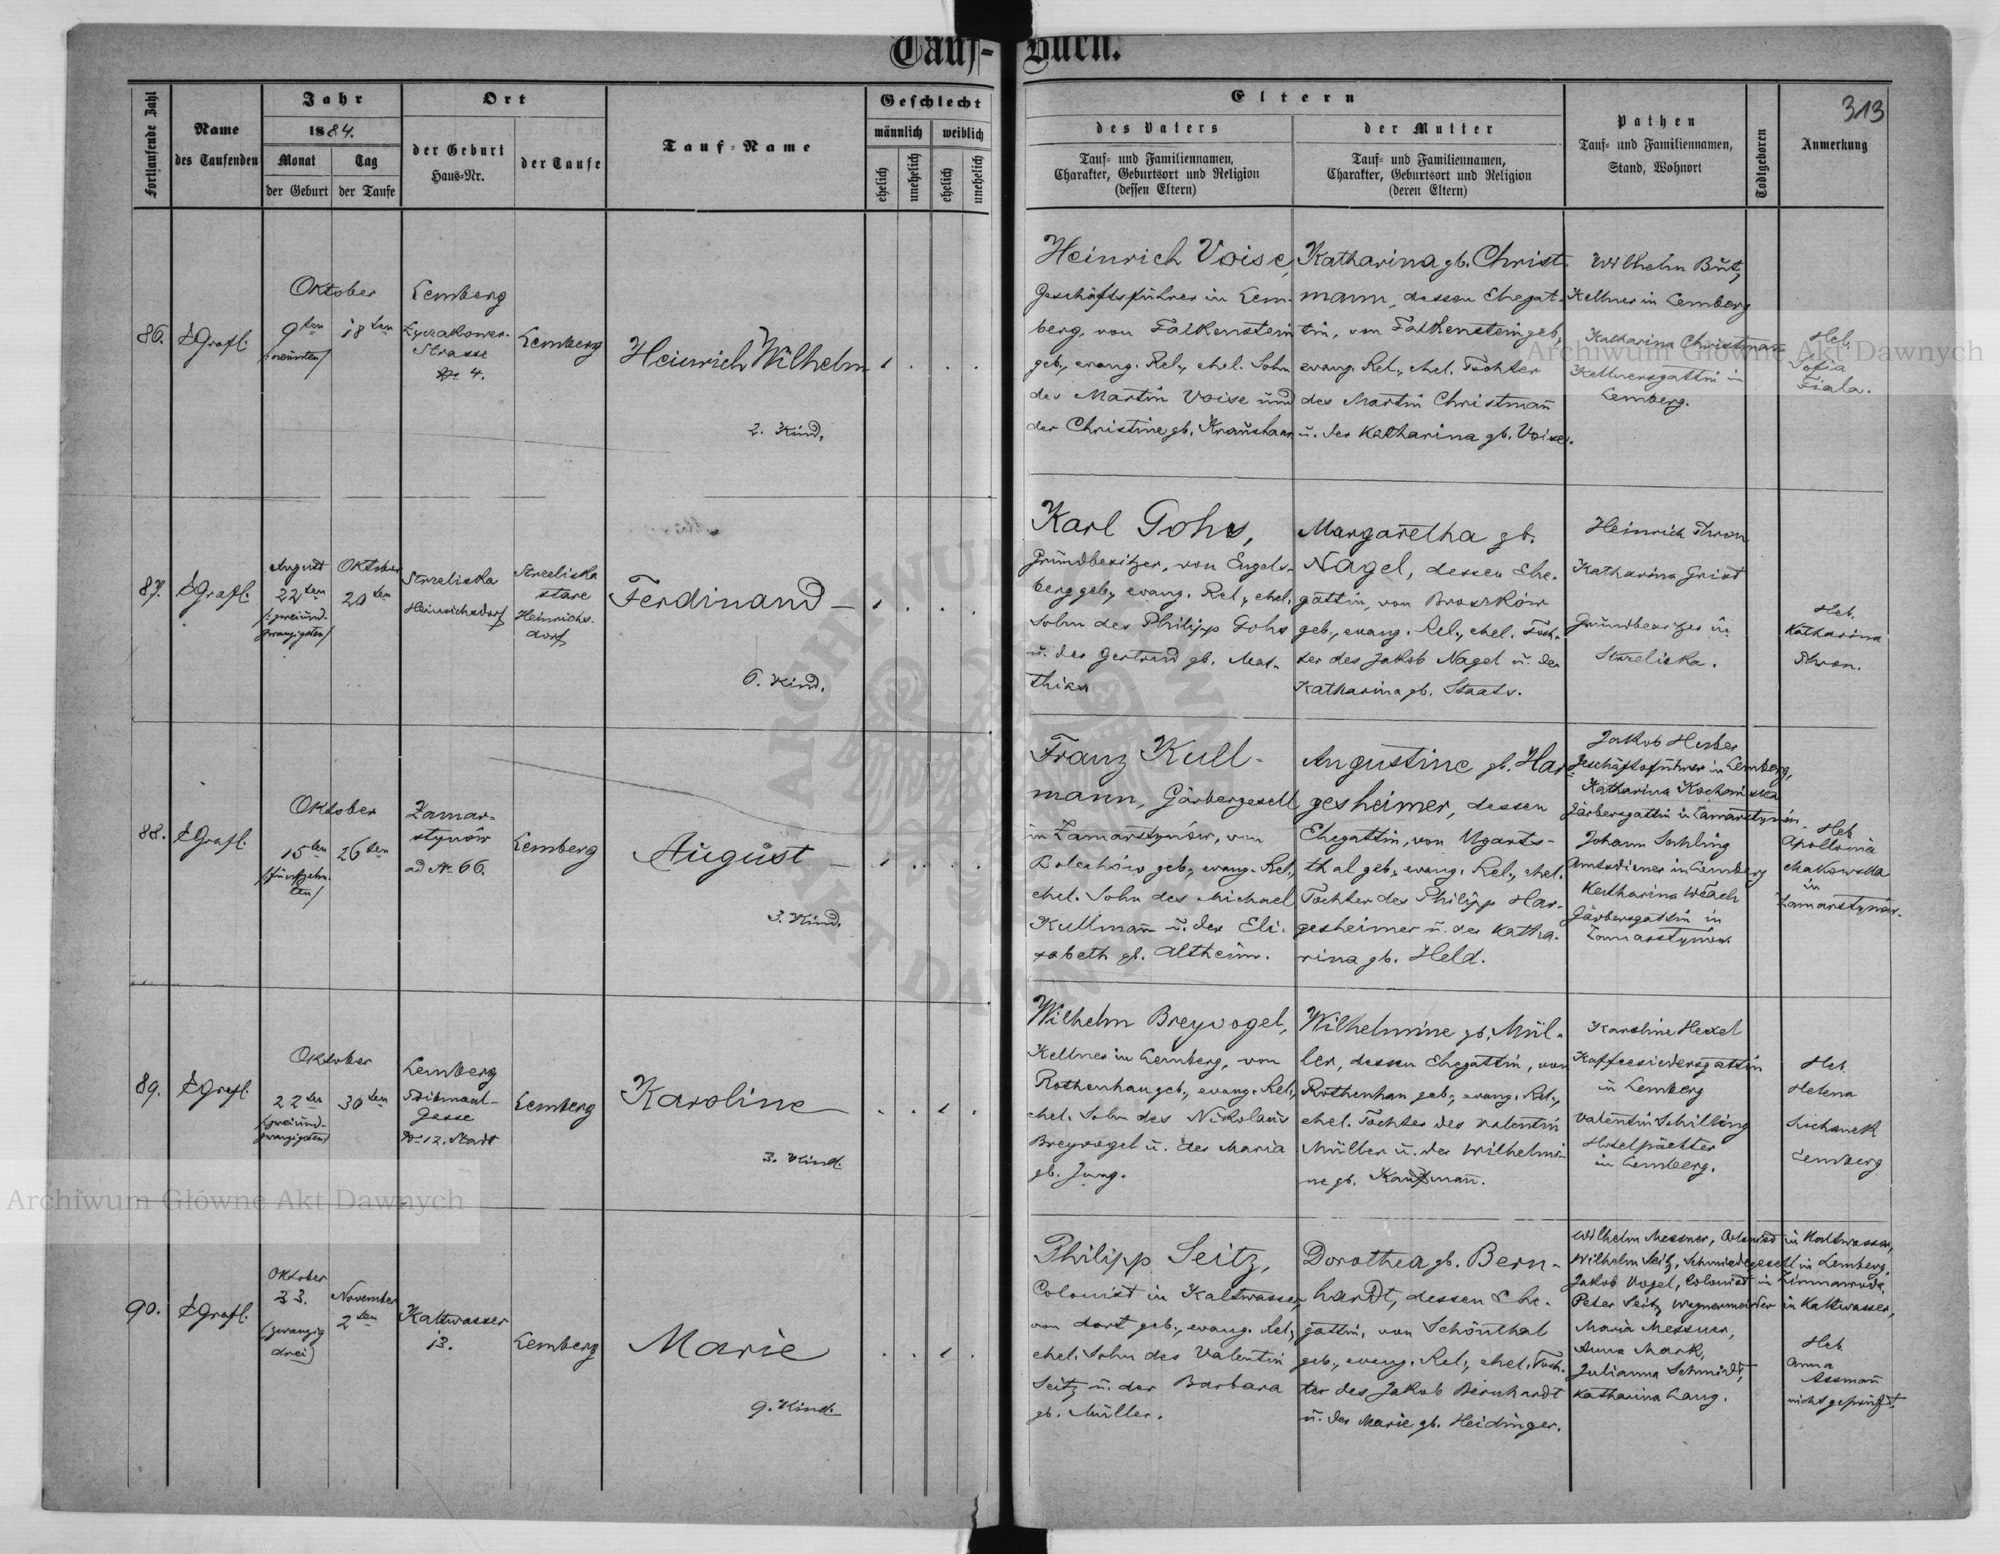 Tauf-Buch.
313
Fortlaufende Zahl
Name
des Taufenden
Jahr
1884.
Monat
Tag
der Geburt
der Taufe
Ort
der Geburt
Haus-Nr.
der Taufe
Tauf-Name
Geschlecht
männlich
weiblich
ehelich
unehelich
ehelich
unehelich
Eltern
des Vaters
Tauf- und Familiennamen,
Charakter, Geburtsort und Religion
(dessen Eltern)
der Mutter
Tauf- und Familiennamen,
Charakter, Geburtsort und Religion
(deren Eltern)
Pathen
Tauf- und Familiennamen,
Stand, Wohnort
Todtgeboren
Anmerkung
86.
Grafl.
Oktober
9ten
18ten
(neunten)
Lemberg
Lyczakower-
Strasse
No 4.
Lemberg
Heinrich Wilhelm
2. Kind.
Heinrich Voise,
Geschäftsführer in Lem-
berg, von Falkenstein
geb., evang. Rel., ehel. Sohn
des Martin Voise und
der Christine gb. Kraushaar
Katharina gb. Christ-
mann, dessen Ehegat-
tin, von Falkenstein geb.,
evang. Rel., ehel. Tochter
des Martin Christmann
u. der Katharina gb. Voise.
Wilhelm Butz
Kellner in Lemberg
Katharina Christmann
Kellnersgattin in
Lemberg.
Heb.
Sofia
Fiala.
87.
Grafl.
August
22ten
(zweiund-
zwanzigsten)
Oktober
20ten
Strzeliska
Heinrichsdorf
Strzeliska
stare
Heinrichs-
dorf
Ferdinand
6. Kind.
Karl Gohs,
Grundbesitzer, von Engels-
berg geb., evang. Rel., ehel.
Sohn des Philipp Gohs
u. der Gertrud gb. Mat-
thias
Margaretha gb.
Nagel, dessen Ehe-
gattin, von Broszków
geb., evang. Rel., ehel. Toch-
ter des Jakob Nagel u. der
Katharina gb. Staats.
Heinrich Thron
Katharina Grist
Grundbesitzer in
Strzeliska.
Heb.
Katharina
Thron.
88.
Grafl.
Oktober
15ten
26ten
(fünfzehn-
ten)
Zamar-
stynów
ad Nr 66.
Lemberg
August
3. Kind.
Franz Kull-
mann, Gärbergesell
in Zamarstynów, von
Bolechów geb., evang. Rel.,
ehel. Sohn des Michael
Kullmann u. der Eli-
sabeth gb. Altheim.
Augustine gb. Har-
gesheimer, dessen
Ehegattin, von Ugarts-
thal geb., evang. Rel., ehel.
Tochter des Philipp Har-
gesheimer u. der Katha-
rina gb. Held.
Jakob Herber
Geschäftsführer in Lemberg,
Katharina
Gärbersgattin in Zamarstynów
Johann
Amtsdiener in Lemberg
Katharina
Gärbersgattin in
Zamarstynów.
Heb.
Apollonia
Makowska
in
Zamarstynów.
89.
Grafl.
Oktober
22ten
30ten
(zweiund-
zwanzigsten)
Lemberg
Gasse
No 12. Stadt
Lemberg
Karoline
3. Kind.
Wilhelm Breyvogel,
Kellner in Lemberg, von
Rothenhan geb., evang. Rel.,
ehel. Sohn des Nikolaus
Breyvogel u. der Maria
gb. Jung.
Wilhelmine gb. Mül-
ler, dessen Ehegattin, von
Rothenhan geb., evang. Rel.,
ehel. Tochter des Valentin
Müller u. der Wilhelmi-
ne gb. Kaufmann.
Karoline Hexel
Kaffeesiedersgattin
in Lemberg
Valentin Schilling
Hotelpächter
in Lemberg.
Heb.
Helena
Lemberg
90.
Grafl.
Oktober
23.
(zwanzig
drei)
November
2ten
Kaltwasser
13.
Lemberg
Marie
9. Kind.
Philipp Seitz,
Colonist in Kaltwasser,
von dort geb., evang. Rel.,
ehel. Sohn des Valentin
Seitz u. der Barbara
gb. Müller.
Dorothea gb. Bern-
hardt, dessen Ehe-
gattin, von Schönthal
geb., evang. Rel., ehel. Toch-
ter des Jakob Bernhardt
u. der Marie gb. Heidinger.
Wilhelm Messner, Colonist in Kaltwasser,
Wilhelm Seitz, Schmiedegesell in Lemberg,
Jakob Vogel, Colonist in
Peter Seitz Wagnermeister in Kaltwasser,
Maria Messner,
Anna Mark,
Julianna Schmidt,
Katharina Lang.
Heb.
Anna
Assmann
nicht geprüft.
Archiwum Główne Akt Dawnych
Archiwum Główne Akt Dawnych
ARCHIWUM GŁÓWNE AKT DAWNYCH